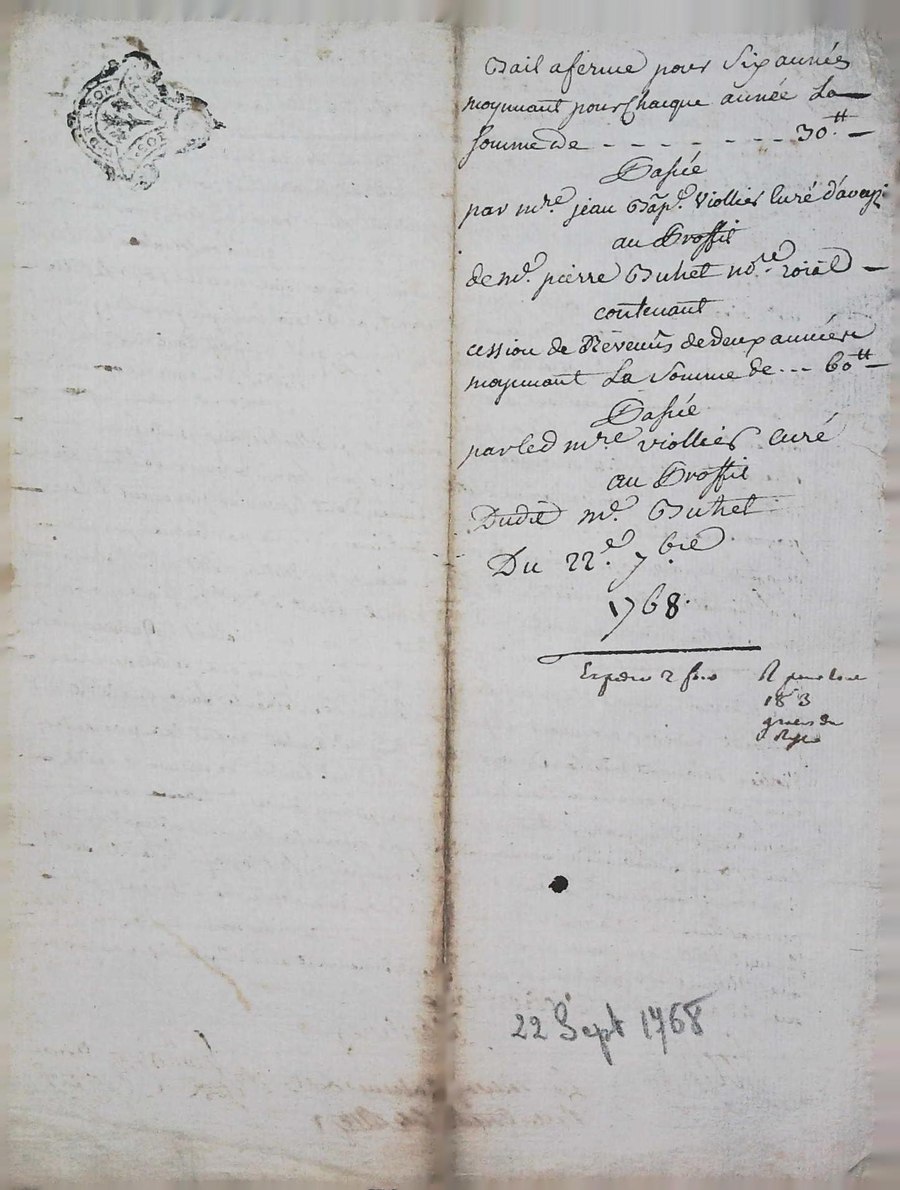 Bail aferme pour Six années
moyenant pour Chaque année La
Somme de - - - - - - - 30.tt
Passée
par mre jean Bapt. Viollier Curé
au Proffit
de Me. pierre Buhet nore. roial
contenant
cession de Révenus de deux années
moyenant La Somme de - - - 60tt
Passée
par led mre viollier curé
au Proffit
Dudit me. Buhet
Du 22e. 7bre
1768.
Expedié 2 fois
22 Sept 1768